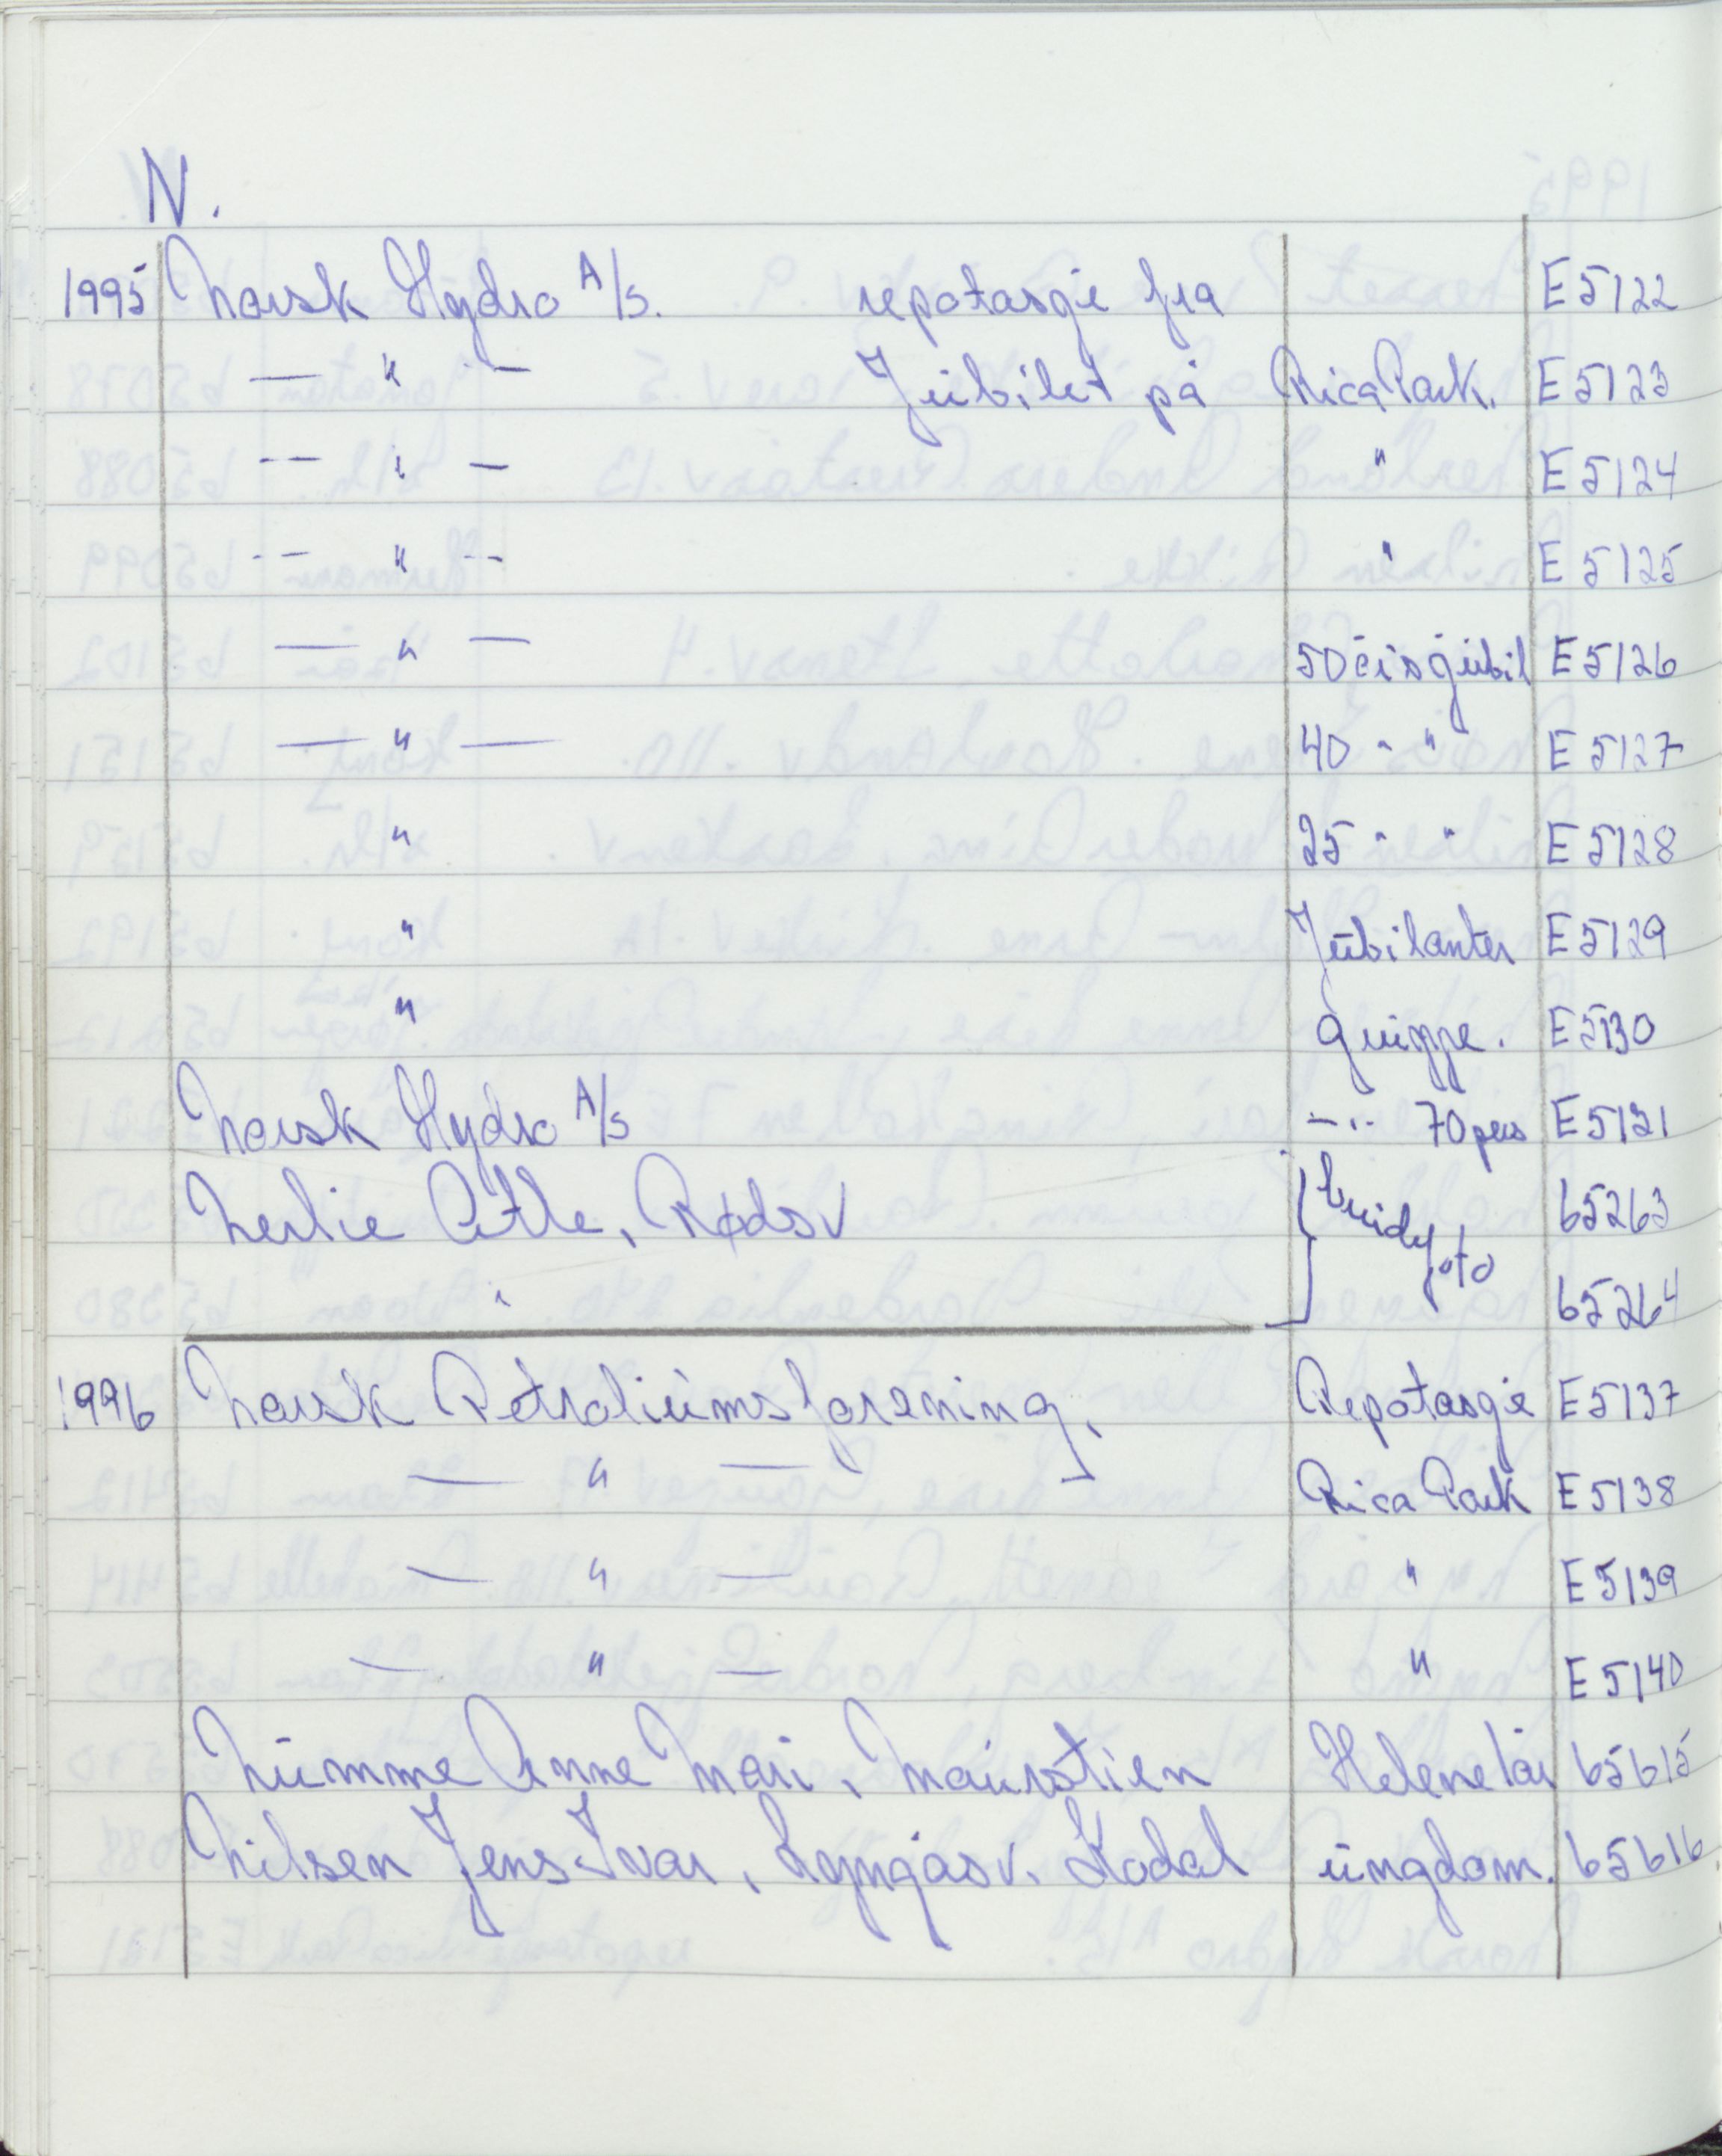 N.
1995 Norsk Hydro A/S. repotasje fra E5122
— " — Jubilet på Rica Park. E5123
— " — " E5124
— " — " E5125
— " — 50 års jubil E5126
— " — 40 " " E5127
" 25 " " E5128
" Jubilanter E5129
" gruppe. E5130
Norsk Hydro A/S — " — 70 pers E5131
Nerlie Atle, Rødsv brudefoto 65263
" 65264
1996 Norsk Petroliumsforening, Repotasje E5137
— " — Rica Park E5138
— " — " E5139
— " — " E5140
Numme Anne Mari, Maurstien Helene 1år 65615
Nilsen Jens-Ivar, Lyngåsv. Kodal ungdom. 65616